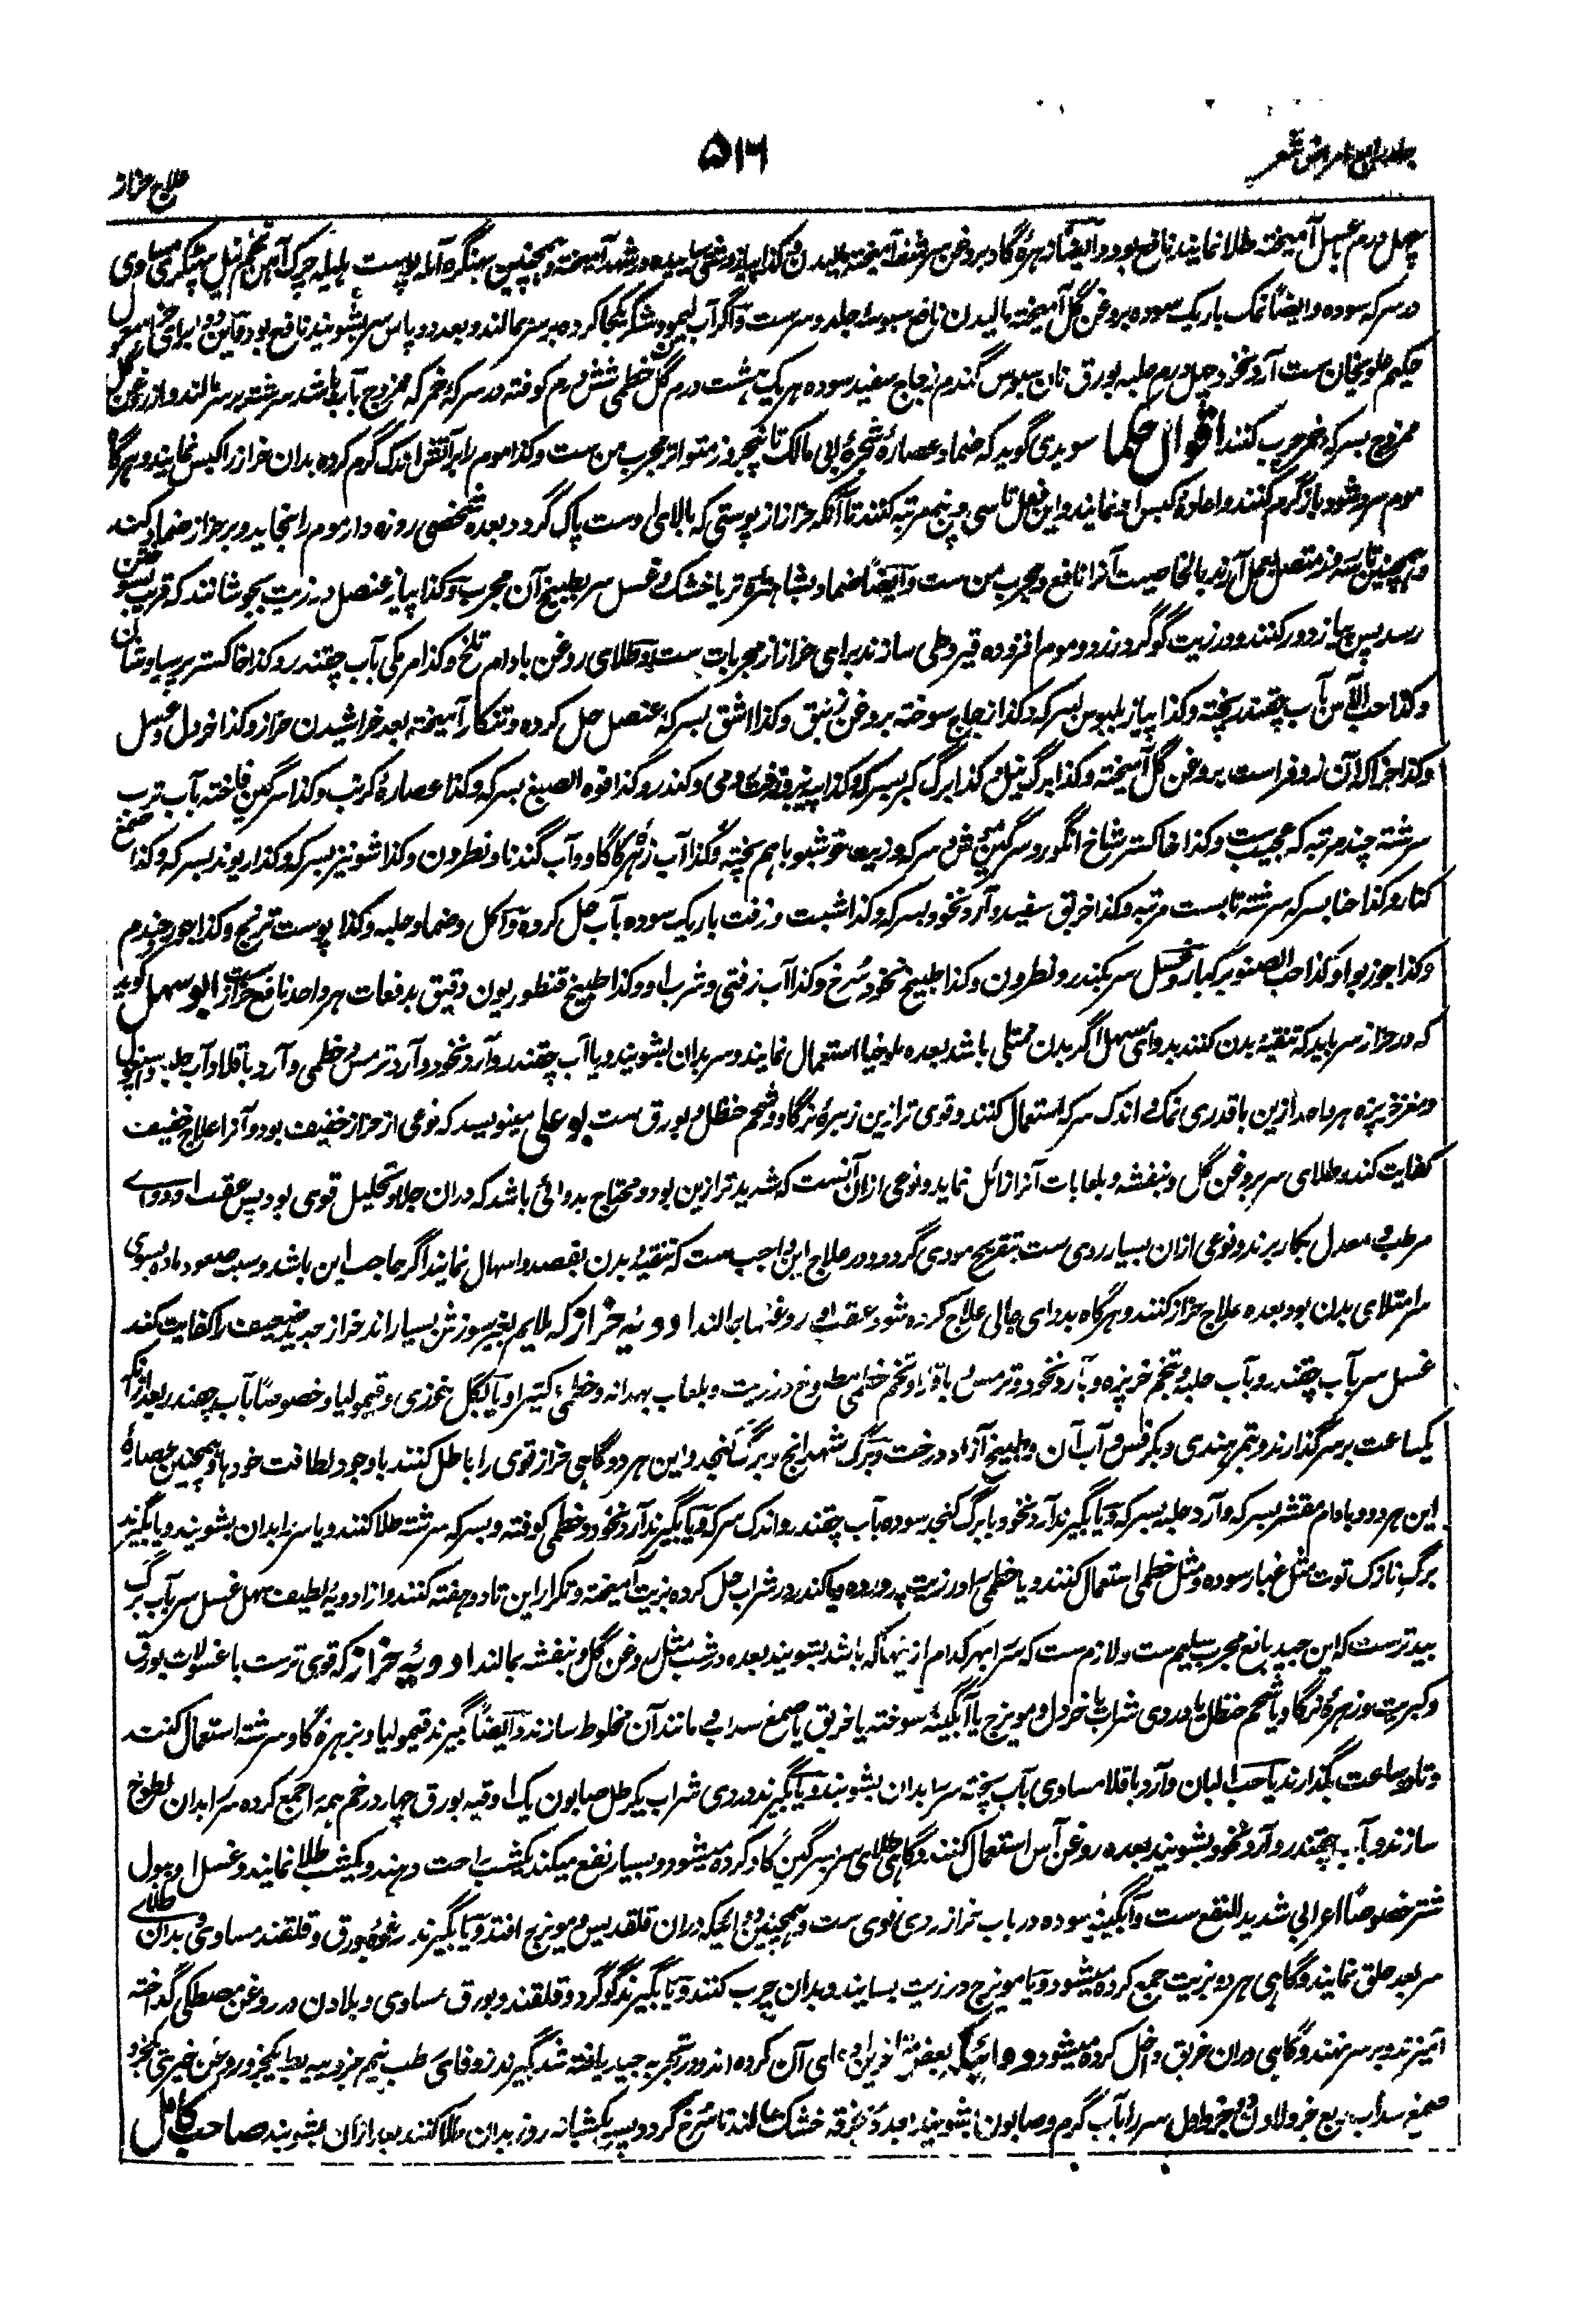 علاج حزاز
۵۱۶
چهل درم بعسل آمیخته طلا نمایند نافع بود و ایضاً زهرهٔ گاو بروغن آمیخته مالیدن و کذا پیاز دشتی سائیده در شهد آمیخته و همچنین بهنگره آمله پوست هلیله چرک آهن تخم نیل پهنکری مساوی
در سرکه سوده و ایضاً نمک باریک سوده بروغن گل آمیخته مالیدن نافع سبوسهٔ جلد و سرست و اگر آب لیمون و شکر یکجا کرده بر سر بمالند و بعد دو پاس سر بشویند نافع بود
حکیم علویخان ست آرد نخود چهل درم حلبه بورق نان سبوس گندم زجاج سفید سوده هر یک هشت درم گل خطمی شش درم کوفته در سرکهٔ خمر که ممزوج بآب باشد سرشته بر سر مالند و از روغن گل
ممزوج بسرکه خمر چرب کنند اقوال حکما سویدی گوید که ضماد عصارهٔ شجرهٔ ابی مالک تا پنجروز متواتر مجرب من ست و کذا موم را بر آتش اندک گرم کرده بدان حزاز را کبس نمایند و هرگاه
موم سرد شود باز گرم کنند و اعادهٔ کبس نمایند و این فعل تا سی و پنج مرتبه کنند تا آنکه حزاز از پوستی که بالای اوست پاک گردد بعده شخصی روزه دار موم را بخاید و بر حزاز ضماد کند
و همچنین تا سه روز متصل بعمل آرند بالخاصیت آنرا نافع و مجرب من ست و ایضاً ضماد بشاهتره تر یا خشک و غسل سر بطبیخ آن مجرب و کذا پیاز عنصل در زیت بجوشانند که قریب بسوختن
رسد پس پیاز دور کنند و در زیت گوگرد زرد و موم افزوده قیروطی سازند برای حزاز از مجربات ست و طلای روغن بادام تلخ و کذا مر مکی بآب چقندر و کذا خاکستر پرسیاوشان
و کذا حب الآس بآب چقندر پخته و کذا پیاز بلبوس بسرکه و کذا زجاج سوخته بروغن زنبق و کذا اشق بسرکهٔ عنصل حل کرده و تنکار آمیخته بعد خراشیدن حزاز و کذا خردل و عسل
و کذا بروغن گل آمیخته و کذا برگ نیل و کذا برگ کبر بسرکه و کذا و کندر و کذا فوه الصبغ بسرکه و کذا عصارهٔ کرنب و کذا سرگین فاخته بآب ترب
سرشته چند مرتبه که عجیب ست و کذا خاکستر شاخ انگور و سرگین و سرکه و زیت خوشبو باهم پخته و کذا آب زهرهٔ گاو و آب گندنا و نطرون و کذا شونیز بسرکه و کذا ریوند بسرکه و کذا صمغ
کنار و کذا حنا بسرکه سرشته تا بست مرتبه و کذا خربق سفید و آرد نخود بسرکه و کذا شبت و زفت باریک سوده بآب حل کرده و اکل و ضماد حلبه و کذا پوست ترنج و کذا جوز جندم
و کذا جوز بوا و کذا حب الصنوبر کبار و غسل سر بکندر و نطرون و کذا طبیخ نخود سرخ و کذا آب زفتی و شراب او و کذا طبیخ قنطوریون دقیق بدفعات هر واحد نافع حزاز ست ابو سهل گوید
که در حزاز سر باید که تنقیهٔ بدن کنند بدوای مسهل اگر بدن ممتلی باشد بعده ملوخیا استعمال نمایند و سر بدان بشویند و یا آب چقندر و آرد نخود و آرد ترمس و خطمی و آرد باقلا و آرد حلبه
و مغز خربزه هر واحد ازین با قدری نمک و اندک سرکه استعمال کنند و قوی تر ازین زهرهٔ نرگاو و شحم حنظل و بورق ست بو علی مینویسد که نوعی از حزاز خفیف بود و آنرا علاج خفیف
کفایت کند و طلای سر بروغن گل و بنفشه و بلعابات آنرا زائل نماید و نوعی ازان آنست که شدید تر ازین بود و محتاج بدوائی باشد که دران جلا و تحلیل قوی بود پس عقب او دوای
مرطب و معدل بکار برند و نوعی ازان بسیار ردی ست بتقریح مودی گردد و در علاج این واجب ست که تنقیهٔ بدن بفصد و اسهال نمایند اگر حاجب این باشد و سبب صعود ماده بسوی
سر امتلای بدن بود بعده علاج حزاز کنند و هرگاه بدوای جالی علاج کرده شود عقب او روغنها بمالند ادویهٔ حزاز که ملایم بغیر سوزش بسیار اند حزاز جدید ضعیف را کفایت کند
غسل سر بآب چقندر و بآب حلبه و تخم خربزه و بآرد نخود و ترمس و باقلا و تخم خطمی مطبوخ در زیت و بلعاب بهدانه و خطمی و کتیرا و یا بگل و قیمولیا و خصوصاً بآب چقندر بعد ازانکه
یکساعت بر سر گذارند و بتمر هندی و بکرفس و آب آن و بطبیخ آزاد درخت و برگ شهدانج و برگ کنجد و این هر دو گاهی حزاز قوی را باطل کنند با وجود لطافت خودها و همچنین عصارهٔ
این هر دو و بادام مقشر بسرکه و آرد حلبه بسرکه و یا بگیرند آرد نخود با برگ کنجد سوده بآب چقندر و اندک سرکه و یا بگیرند آرد نخود و خطمی کوفته و بسرکه سرشته طلا کنند و یا سر را بدان بشویند و یا بگیرند
برگ نازک توت مثل غبار سوده و مثل خطمی استعمال کنند و یا خطمی را در زیت پرورده و یا کندر در شراب حل کرده بزیت آمیخته و تکرار این تا دو هفته کنند و از ادویهٔ لطیف سهل غسل سر بآب برگ
بید ترست که این جید بالغ مجرب سلیم ست و لازم ست که سر را بهر کدام از اینها که باشد بشویند بعده در شب مثل روغن گل و بنفشه بمالند ادویهٔ حزاز که قوی ترست با غسولات بورق
و کبریت و زهرهٔ نرگاو یا شحم حنظل یا دردی شراب یا خردل و مویزج یا آبگینهٔ سوخته یا خربق یا صمغ سداب و مانند آن مخلوط سازند و ایضاً بگیرند قیمولیا و بزهرهٔ گاو سرشته استعمال کنند
و تا دو ساعت بگذارند یا حب البان و آرد باقلا مساوی بآب پخته سر را بدان بشویند و یا بگیرند دردی شراب یکرطل صابون یک اوقیه بورق چهار درخم همه را جمع کرده سر را بدان لطوخ
سازند و بآب چقندر و آرد نخود بشویند بعده روغن آس استعمال کنند و گاهی طلای سر بسرگین گاو کرده میشود و بسیار نفع میکند یکشب راحت دهند و یکشب طلا نمایند و غسل او ببول
شتر خصوصاً اعرابی شدید النفع ست و آبگینهٔ سوده در باب حزاز ردی قوی ست و همچنین دوائیکه دران قلقدیس و مویزج افتد و یا بگیرند رغوهٔ بورق و قلقند مساوی و بدان طلای
سر بعد حلق نمایند و گاهی هر دو بزیت جمع کرده میشود و یا مویزج در زیت بسایند و بدان چرب کنند و یا بگیرند گوگرد و قلقند و بورق مساوی و بلادن در روغن مصطکی گداخته
آمیزند و بر سر نهند و گاهی دران خربق داخل کرده میشود و دوائیکه بعض متاخرین ادعای آن کرده اند و در تجربه جید یافته شد بگیرند زوفای رطب نیم جزو پیه بط یکجزو روغن خیری یکجزو
صمغ سداب ربع جزو لادن دو جزو اول سر را بآب گرم و صابون بشویند و بعده بخرقهٔ خشک مالند تا سرخ گردد پس یکشبانه روز بدان طلا کنند بعد ازان بشویند صاحب کامل